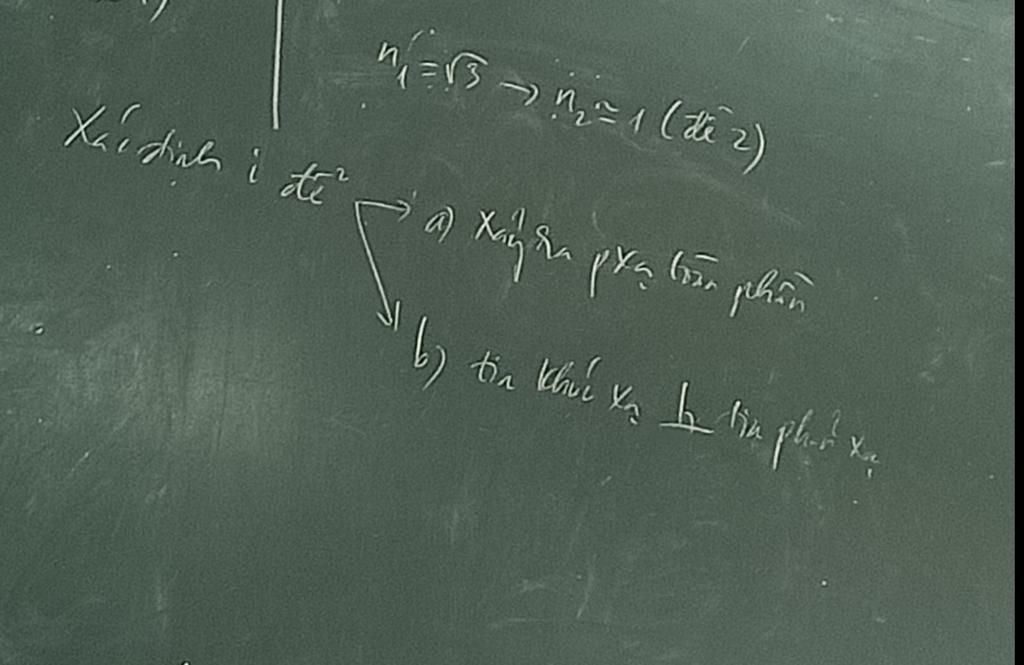 n₁ = √3 → n₂ ≈ 1 (đề 2)
Xác định i để
a) Xảy ra pxạ toàn phần
b) tia khúc xạ ⊥ tia phản xạ